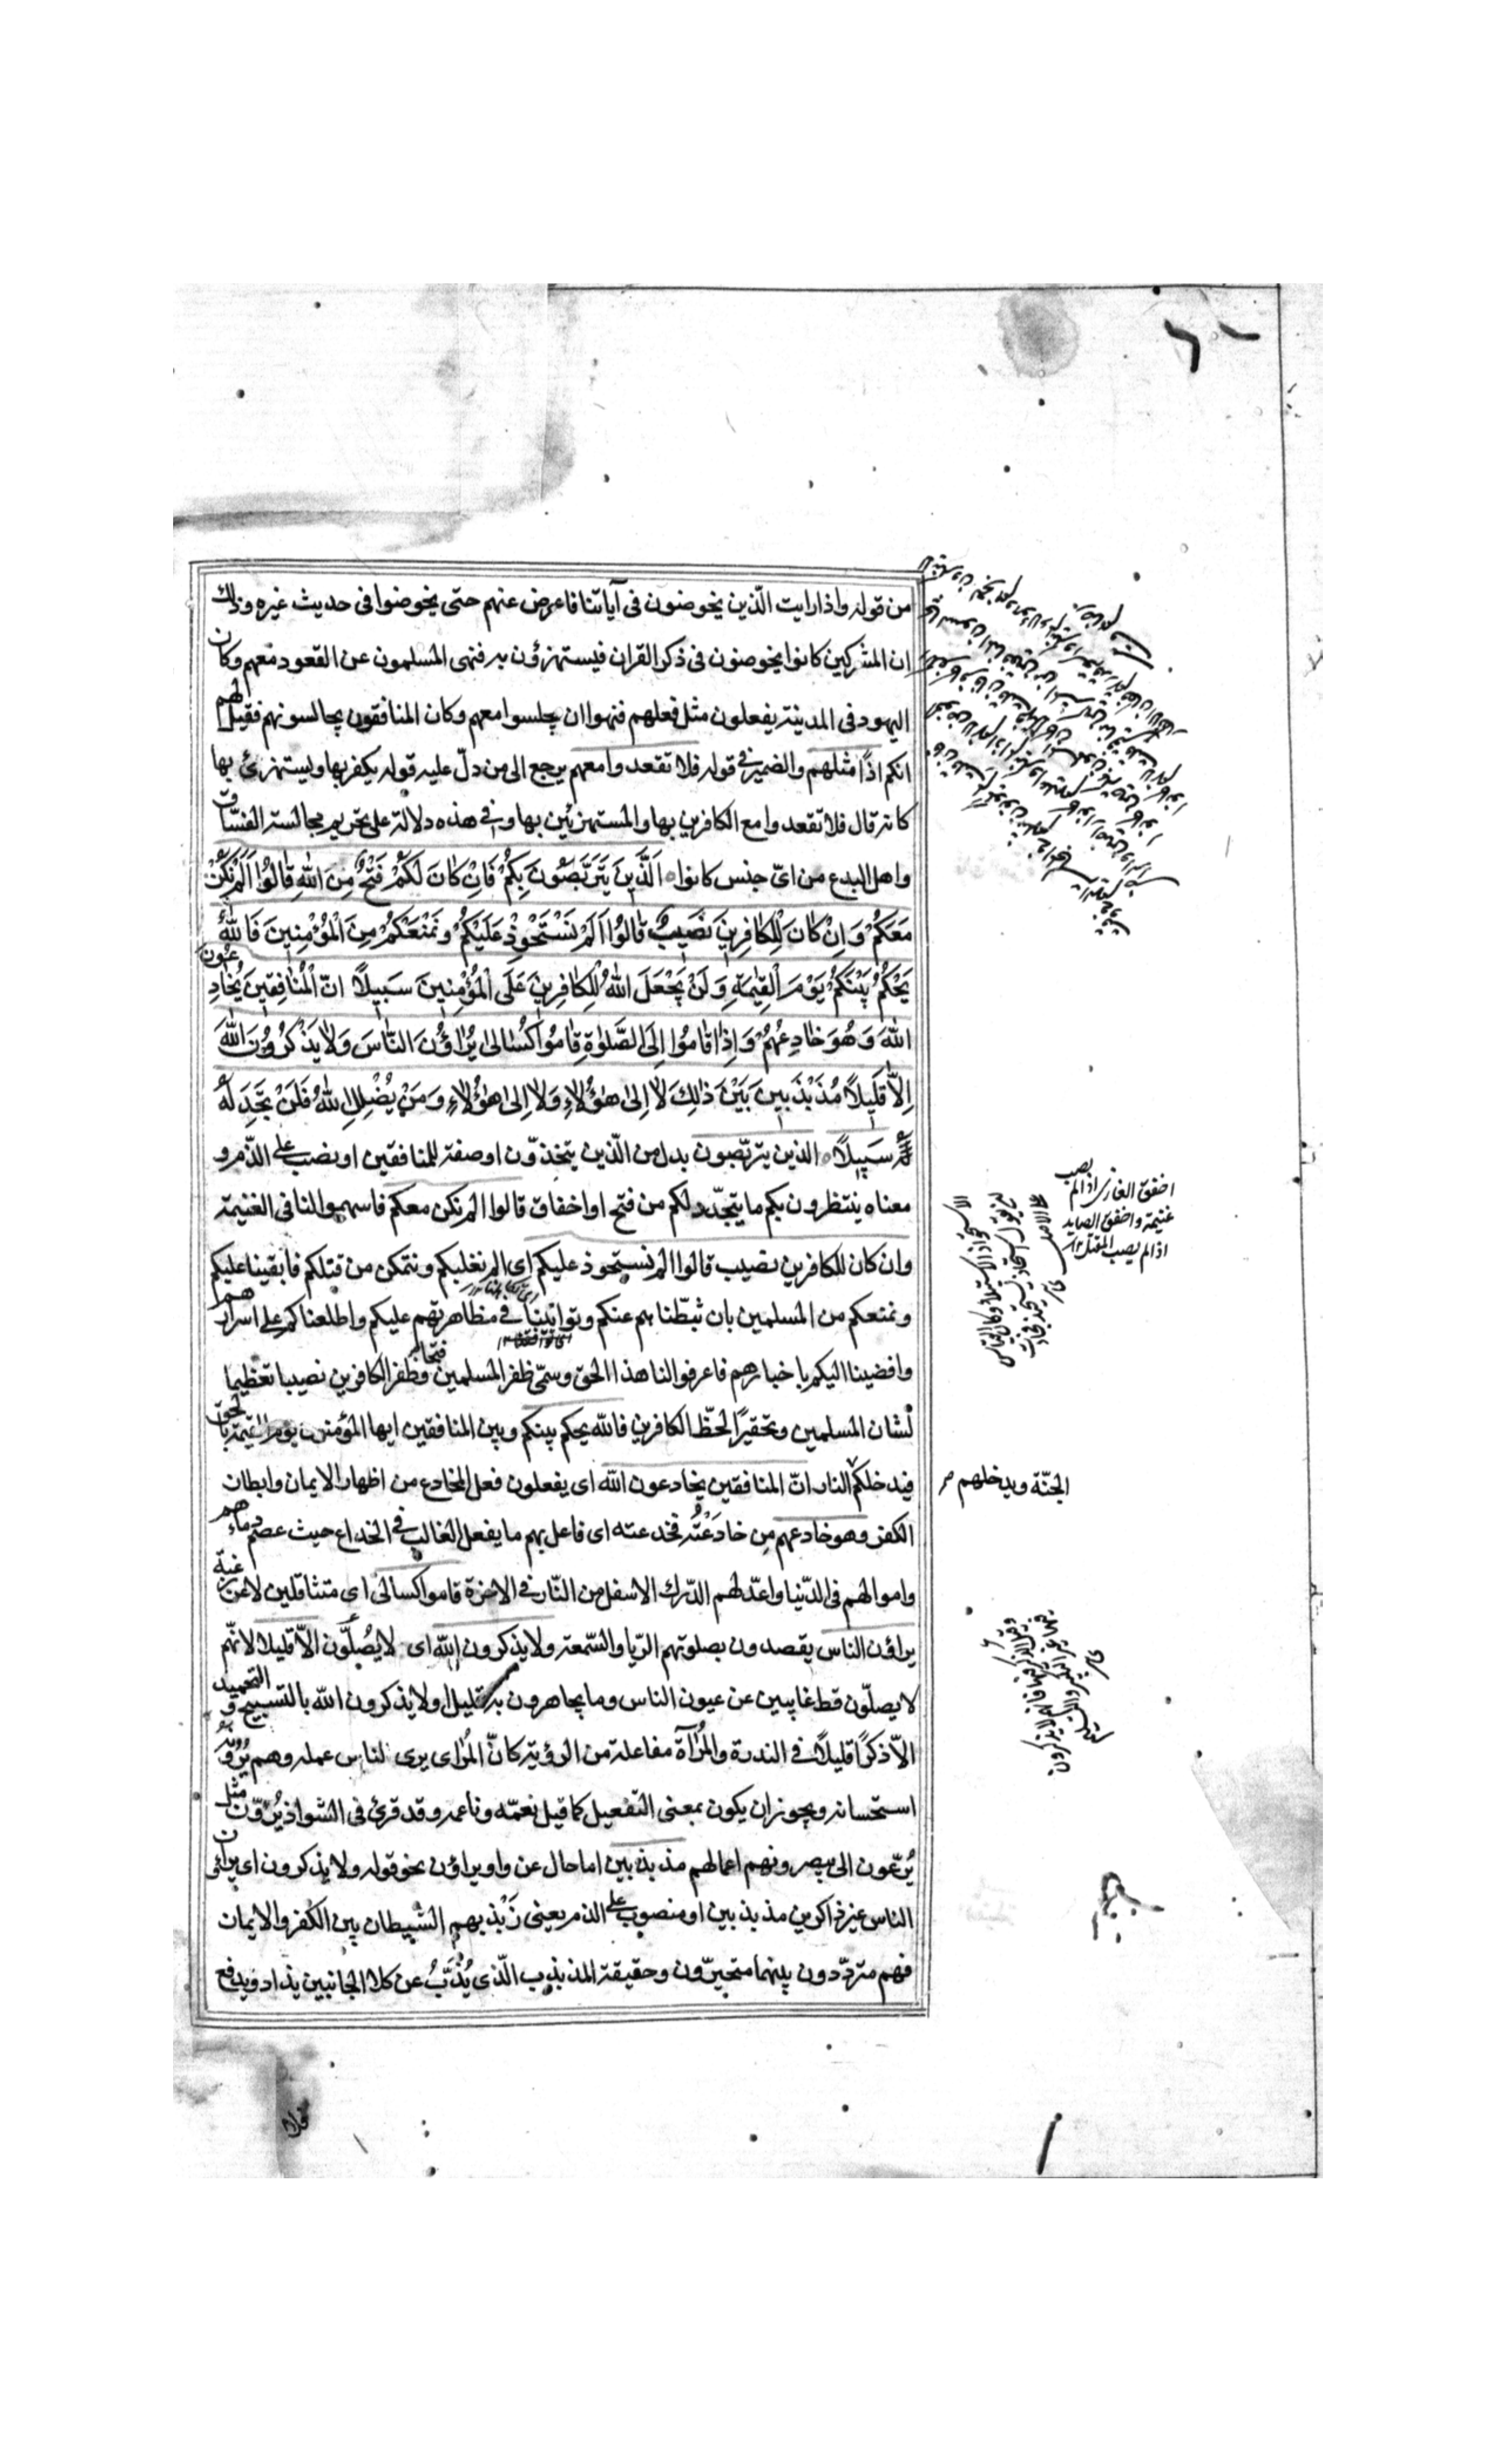 من قوله واذا رايت الّذين يخوضون فى آياتنا فاعرض عنهم حتى يخوضوا فى حديث غيره وذلك
ان المشركين كانوا يخوضون فى ذكر القران فيستهزؤن به فنهى المسلمون عن القعود معهم وكان
اليهود فى المدينة يفعلون مثل فعلهم فنهوا ان يجلسوا معهم وكان المنافقون يجالسونهم فقيل لهم
انكم اذًا مثلهم والضمير فى قوله فلا تقعدوا معهم يرجع الى من دلّ عليه قوله يكفر بها ويستهزئ بها
كانه قال فلا تقعدوا مع الكافرين بها والمستهزئين بها وفى هذه دلالة على تحريم مجالسة الفسّاق
واهل البدع من اىّ جنس كانوا اَلَّذِينَ يَتَرَبَّصُونَ بِكُمْ فَاِنْ كَانَ لَكُمْ فَتْحٌ مِنَ اللّٰهِ قَالُوا اَلَمْ نَكُنْ
مَعَكُمْ وَاِنْ كَانَ لِلْكَافِرِينَ نَصِيبٌ قَالُوا اَلَمْ نَسْتَحْوِذْ عَلَيْكُمْ وَنَمْنَعْكُمْ مِنَ الْمُؤْمِنِينَ فَاللّٰهُ
يَحْكُمُ بَيْنَكُمْ يَوْمَ الْقِيٰمَةِ وَلَنْ يَجْعَلَ اللّٰهُ لِلْكَافِرِينَ عَلَى الْمُؤْمِنِينَ سَبِيلًا انّ الْمُنَافِقِينَ يُخَادِعُونَ
اللّٰهَ وَهُوَ خَادِعُهُمْ وَاِذَا قَامُوا اِلَى الصَّلٰوةِ قَامُوا كُسَالٰى يُرَاؤُنَ النَّاسَ وَلَا يَذْكُرُونَ اللّٰهَ
اِلَّا قَلِيلًا مُذَبْذَبِينَ بَيْنَ ذٰلِكَ لَا اِلٰى هٰؤُلَاءِ وَلَا اِلٰى هٰؤُلَاءِ وَمَنْ يُضْلِلِ اللّٰهُ فَلَنْ تَجِدَ لَهُ
سَبِيلًا الذين يتربّصون بدل من الّذين يتخذون او صفة للمنافقين او نصب على الذّم و
معناه ينتظرون بكم ما يتجدّد لكم من فتح او اخفاق قالوا الم نكن معكم فاسهموا لنا فى الغنيمة
وان كان للكافرين نصيب قالوا الم نستحوذ عليكم اى الم نغلبكم ونتمكن من قتلكم فابقينا عليكم
ونمنعكم من المسلمين بان ثبّطناهم عنكم وتوانينا فى مظاهرتهم عليكم واطلعناكم على اسرارهم
وافضينا اليكم باخبارهم فاعرفوا لنا هذا الحق وسمّى ظفر المسلمين فتحا وظفر الكافرين نصيبا تعظيما
لشان المسلمين وتحقيرًا لحظّ الكافرين فالله يحكم بينكم وبين المنافقين ايها المؤمنون يوم القيمة بالحق
فيدخلكم النار انّ المنافقين يخادعون الله اى يفعلون فعل المخادع من اظهار الايمان وابطان
الجنّة ويدخلهم
الكفر وهو خادعهم من خادَعْتُه فخدعته اى فاعل بهم ما يفعل الغالب فى الخداع حيث عصم دماءهم
واموالهم فى الدّنيا واعدّ لهم الدّرك الاسفل من النّار فى الاخرة قاموا كسالى اى متثاقلين لا عن رغبة
يراؤن الناس يقصدون بصلوتهم الرّيا والسّمعة ولا يذكرون الله اى لا يُصلّون الاّ قليلا لانّهم
لا يصلّون قط غايبين عن عيون الناس وما يجاهرون به قليل او لا يذكرون الله بالتسبيح والتحميد
الاّ ذكرًا قليلًا فى الندرة والمُراآة مفاعلة من الرؤية كانّ المُراى يرى الناس عمله وهم يُرونه
استحسانه ويجوز ان يكون بمعنى التفعيل كما قيل نعّمه وناعمه وقد قرئ فى الشواذ يُرَؤّن مثل
يُرعّون اى يبصرونهم اعمالهم مذبذبين اما حال عن واو يراؤن نحو قوله ولا يذكرون اى يراؤن
الناس غير ذاكرين مذبذبين او منصوب على الذم يعنى ذَبْذبهم الشيطان بين الكفر والايمان
فهم متردّدون بينهما متحيّرون وحقيقة المذبذب الّذى يُذَبّ عن كلا الجانبين يذاد ويدفع
اخفق الغازى اذا لم يصب
غنيمة واخفق الصايد
اذا لم يصب
فلا